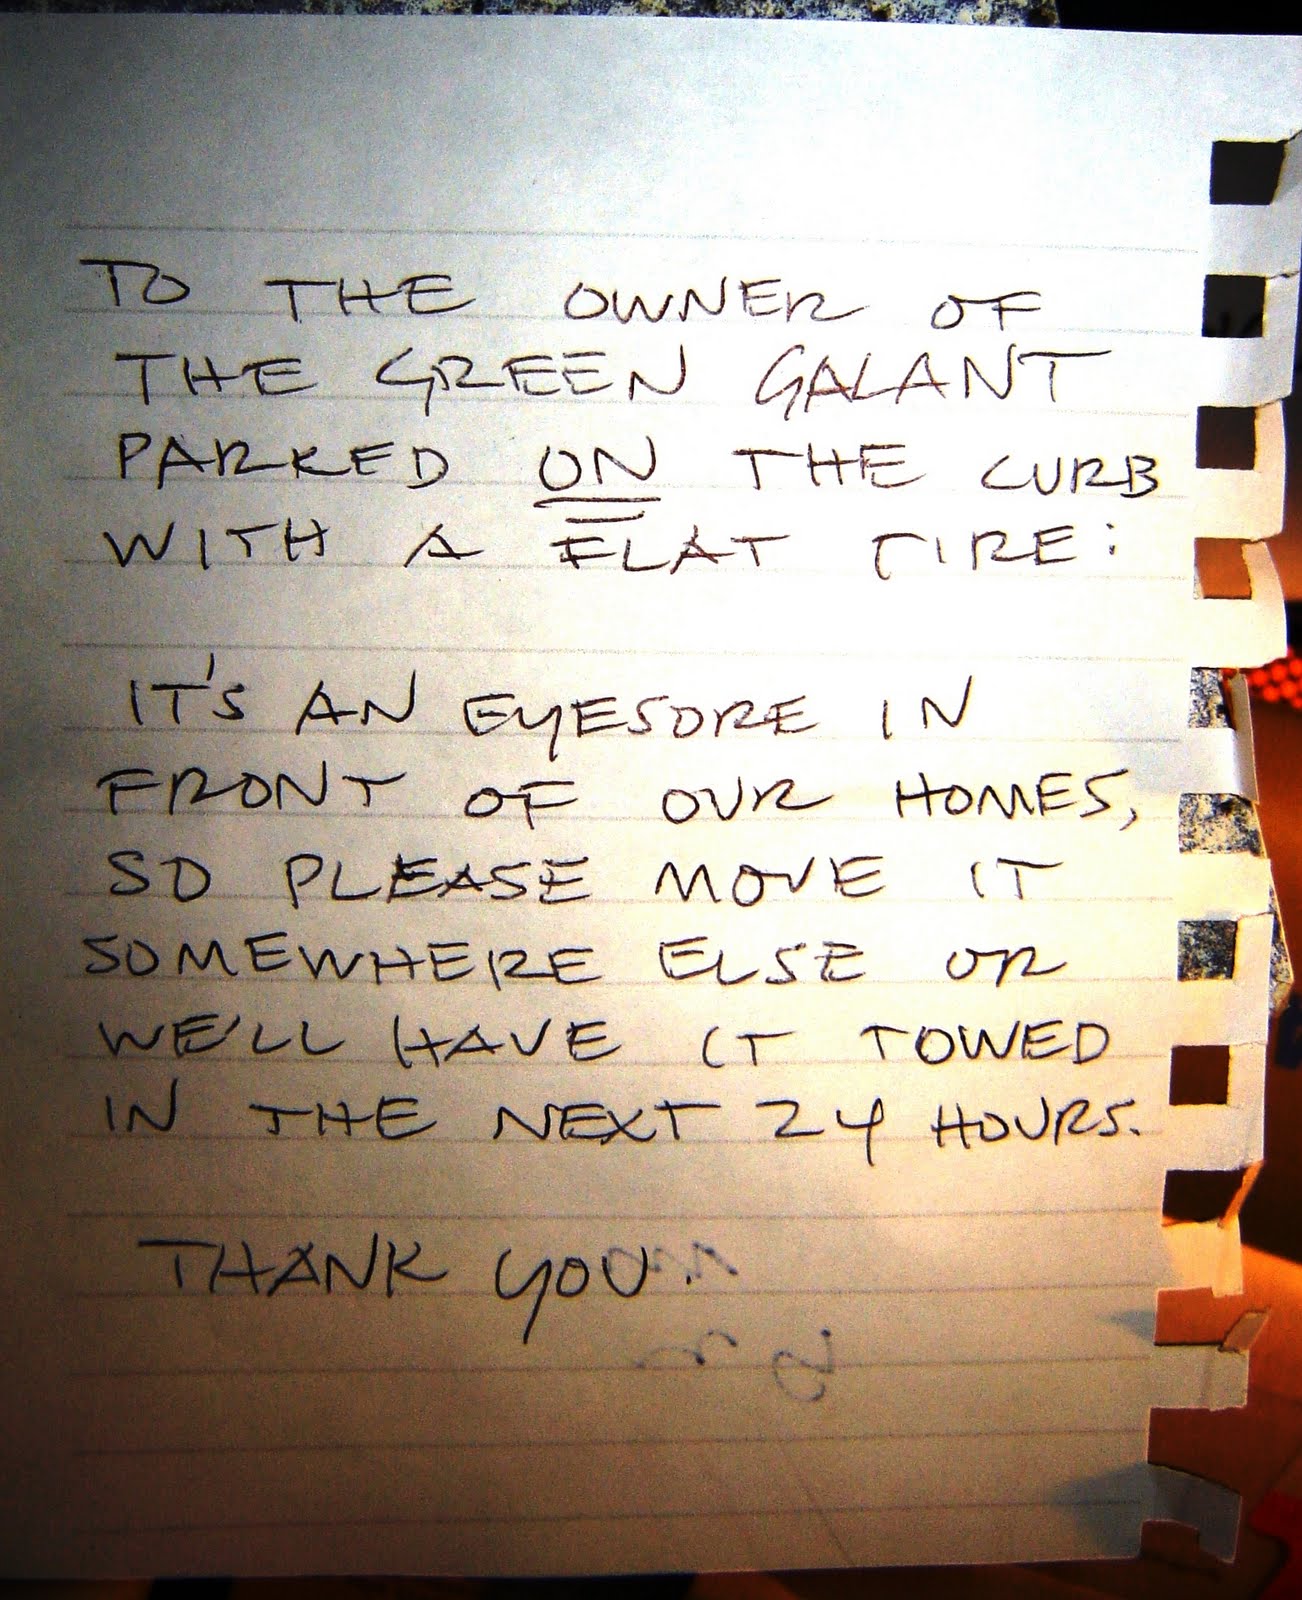 TO THE OWNER OF
THE GREEN GALANT
PARKED ON THE CURB
WITH A FLAT TIRE:
IT'S AN EYESORE IN
FRONT OF OUR HOMES,
SO PLEASE MOVE IT
SOMEWHERE ELSE OR
WE'LL HAVE IT TOWED
IN THE NEXT 24 HOURS.
THANK YOU.